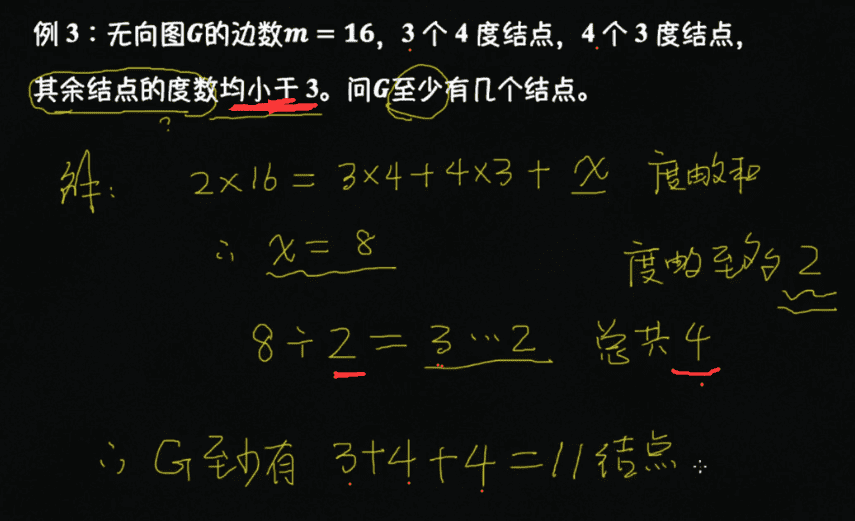 例 3：无向图G的边数m = 16，3 个 4 度结点，4 个 3 度结点，
其余结点的度数均小于 3。问G至少有几个结点。
?
解： 2×16 = 3×4+4×3+ x 度数和
∴ x = 8
度数至多 2
8÷2 = 3…2 总共 4
∴ G至少有 3+4+4=11结点